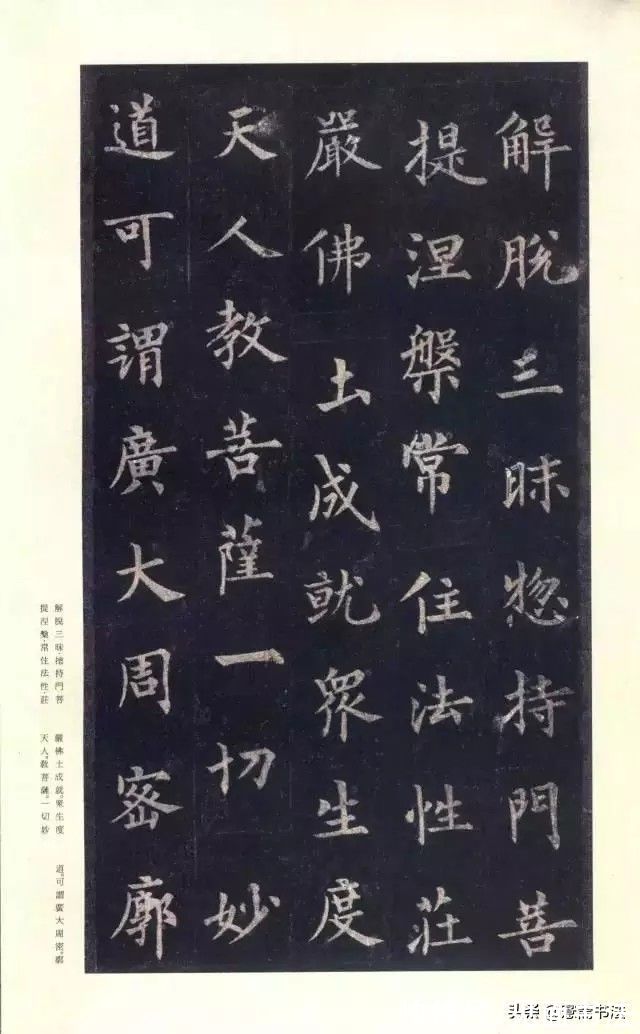 解脱三昧揔持門菩
提涅槃常住法性莊
嚴佛土成就衆生度
天人教菩薩一切妙
道可謂廣大周密廓
解脫三昧揔持門菩
提涅槃常住法性莊
嚴佛土成就衆生度
天人教菩薩一切妙
道可謂廣大周密廓
头条